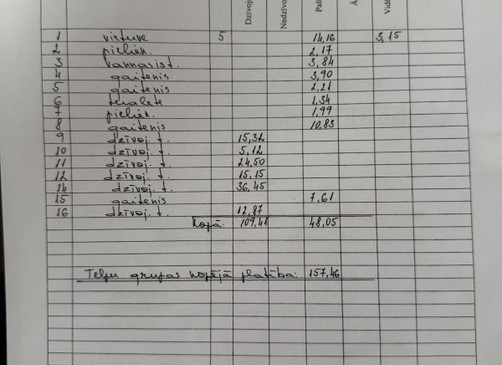 Dzīvoj
Nedzīvo
Pali
Ā
1 virtuve 5 14,16 3,15
2 pieliek. 2,17
3 vannasist. 3,84
4 gaitenis 3,90
5 gaitenis 2,21
6 tualete 1,34
7 pieliek. 1,99
8 gaitenis 10,83
9 dzīvoj. t. 15,32
10 dzīvoj. t. 5,12
11 dzīvoj. t. 24,50
12 dzīvoj. t. 15,15
14 dzīvoj. t. 36,45
15 gaitenis 7,61
16 dzīvoj. t. 12,87
Kopā: 109,41 48,05
Telpu grupas kopējā platība: 157,46